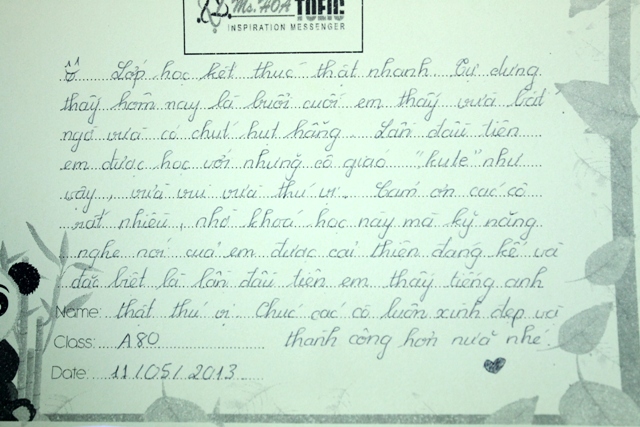 Ms. HOA TOEIC
INSPIRATION MESSENGER
Lớp học kết thúc thật nhanh. Tự dưng
thấy hôm nay là buổi cuối em thấy vừa bất
ngờ vừa có chút hụt hẫng. Lần đầu tiên
em được học với những cô giáo "kute" như
vậy, vừa vui vừa thú vị. Cám ơn các cô
rất nhiều, nhờ khoá học này mà kỹ năng
nghe nói của em được cải thiện đáng kể và
đặc biệt là lần đầu tiên em thấy tiếng anh
Name: thật thú vị. Chúc các cô luôn xinh đẹp và
Class: A80 thành công hơn nữa nhé.
Date: 11/05/2013